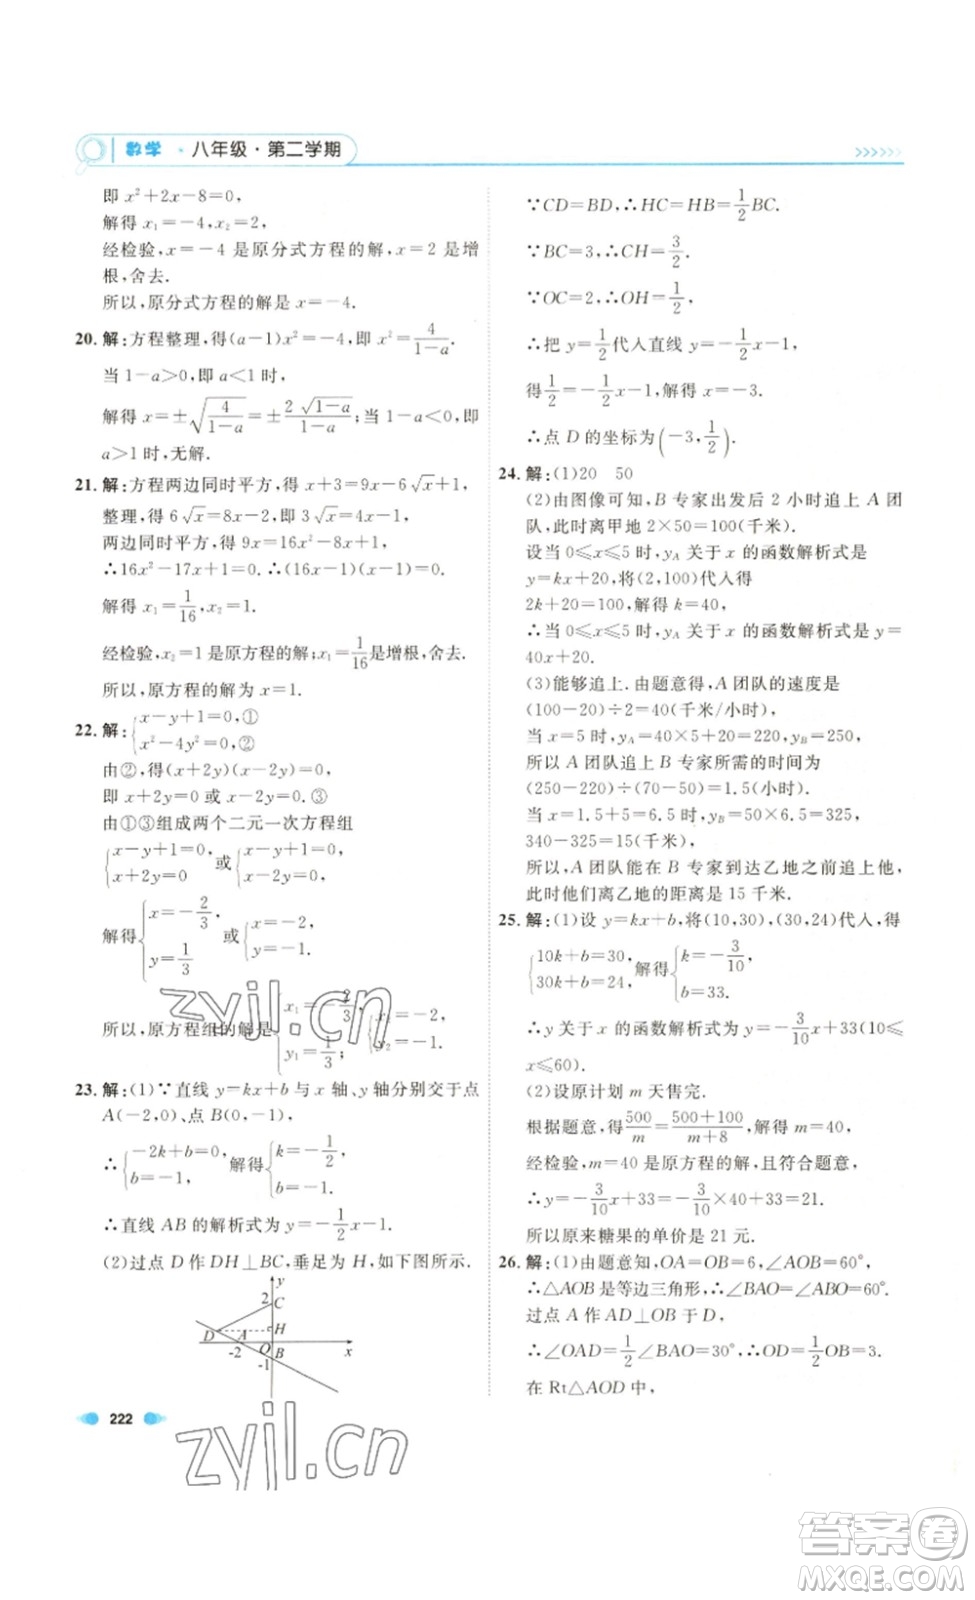 数学 · 八年级 · 第二学期
即 x²+2x-8=0,
解得 x₁=-4, x₂=2,
经检验, x=-4 是原分式方程的解, x=2 是增
根, 舍去.
所以, 原分式方程的解是 x=-4.
20. 解: 方程整理, 得(a-1)x²=-4, 即 x²=4/(1-a).
当 1-a>0, 即 a<1 时,
解得 x=±√(4/(1-a))=±2√(1-a)/(1-a); 当 1-a<0, 即
a>1 时, 无解.
21. 解: 方程两边同时平方, 得 x+3=9x-6√x+1,
整理, 得 6√x=8x-2, 即 3√x=4x-1,
两边同时平方, 得 9x=16x²-8x+1,
∴16x²-17x+1=0. ∴(16x-1)(x-1)=0.
解得 x₁=1/16, x₂=1.
经检验, x₂=1 是原方程的解; x₁=1/16 是增根, 舍去.
所以, 原方程的解为 x=1.
22. 解: {x-y+1=0, ①
x²-4y²=0, ②
由②, 得(x+2y)(x-2y)=0,
即 x+2y=0 或 x-2y=0. ③
由①③组成两个二元一次方程组
{x-y+1=0, x+2y=0 或 {x-y+1=0, x-2y=0.
解得 {x=-2/3, y=1/3 或 {x=-2, y=-1.
所以, 原方程组的解是 {x₁=-2/3, y₁=1/3; {x₂=-2, y₂=-1.
23. 解: (1)∵直线 y=kx+b 与 x 轴、y 轴分别交于点
A(-2,0)、点 B(0,-1),
∴{-2k+b=0, b=-1. 解得 {k=-1/2, b=-1.
∴直线 AB 的解析式为 y=-1/2x-1.
(2)过点 D 作 DH⊥BC, 垂足为 H, 如下图所示.
y
2 C
D A H
-2 O x
-1 B
222
∵CD=BD, ∴HC=HB=1/2BC.
∵BC=3, ∴CH=3/2.
∵OC=2, ∴OH=1/2,
∴把 y=1/2 代入直线 y=-1/2x-1,
得 1/2=-1/2x-1, 解得 x=-3.
∴点 D 的坐标为(-3, 1/2).
24. 解: (1)20 50
(2)由图像可知, B 专家出发后 2 小时追上 A 团
队, 此时离甲地 2×50=100(千米).
设当 0≤x≤5 时, y_A 关于 x 的函数解析式是
y=kx+20, 将(2,100)代入得
2k+20=100, 解得 k=40,
∴当 0≤x≤5 时, y_A 关于 x 的函数解析式是 y=
40x+20.
(3)能够追上. 由题意得, A 团队的速度是
(100-20)÷2=40(千米/小时)
当 x=5 时, y_A=40×5+20=220, y_B=250.
所以 A 团队追上 B 专家所需的时间为
(250-220)÷(70-50)=1.5(小时).
当 x=1.5+5=6.5 时, y_B=50×6.5=325,
340-325=15(千米),
所以, A 团队能在 B 专家到达乙地之前追上他,
此时他们离乙地的距离是 15 千米.
25. 解: (1)设 y=kx+b, 将(10,30), (30,24)代入, 得
{10k+b=30, 30k+b=24, 解得 {k=-3/10, b=33.
∴y 关于 x 的函数解析式为 y=-3/10x+33(10≤
x≤60).
(2)设原计划 m 天售完.
根据题意, 得 500/m=(500+100)/(m+8), 解得 m=40,
经检验, m=40 是原方程的解, 且符合题意,
∴y=-3/10x+33=-3/10×40+33=21.
所以原来糖果的单价是 21 元.
26. 解: (1)由题意知, OA=OB=6, ∠AOB=60°.
∴△AOB 是等边三角形, ∴∠BAO=∠ABO=60°.
过点 A 作 AD⊥OB 于 D,
∴∠OAD=1/2∠BAO=30°, ∴OD=1/2OB=3.
在 Rt△AOD 中,
zyjl.cn
zyjl.cn
答案圈
MXQE.COM